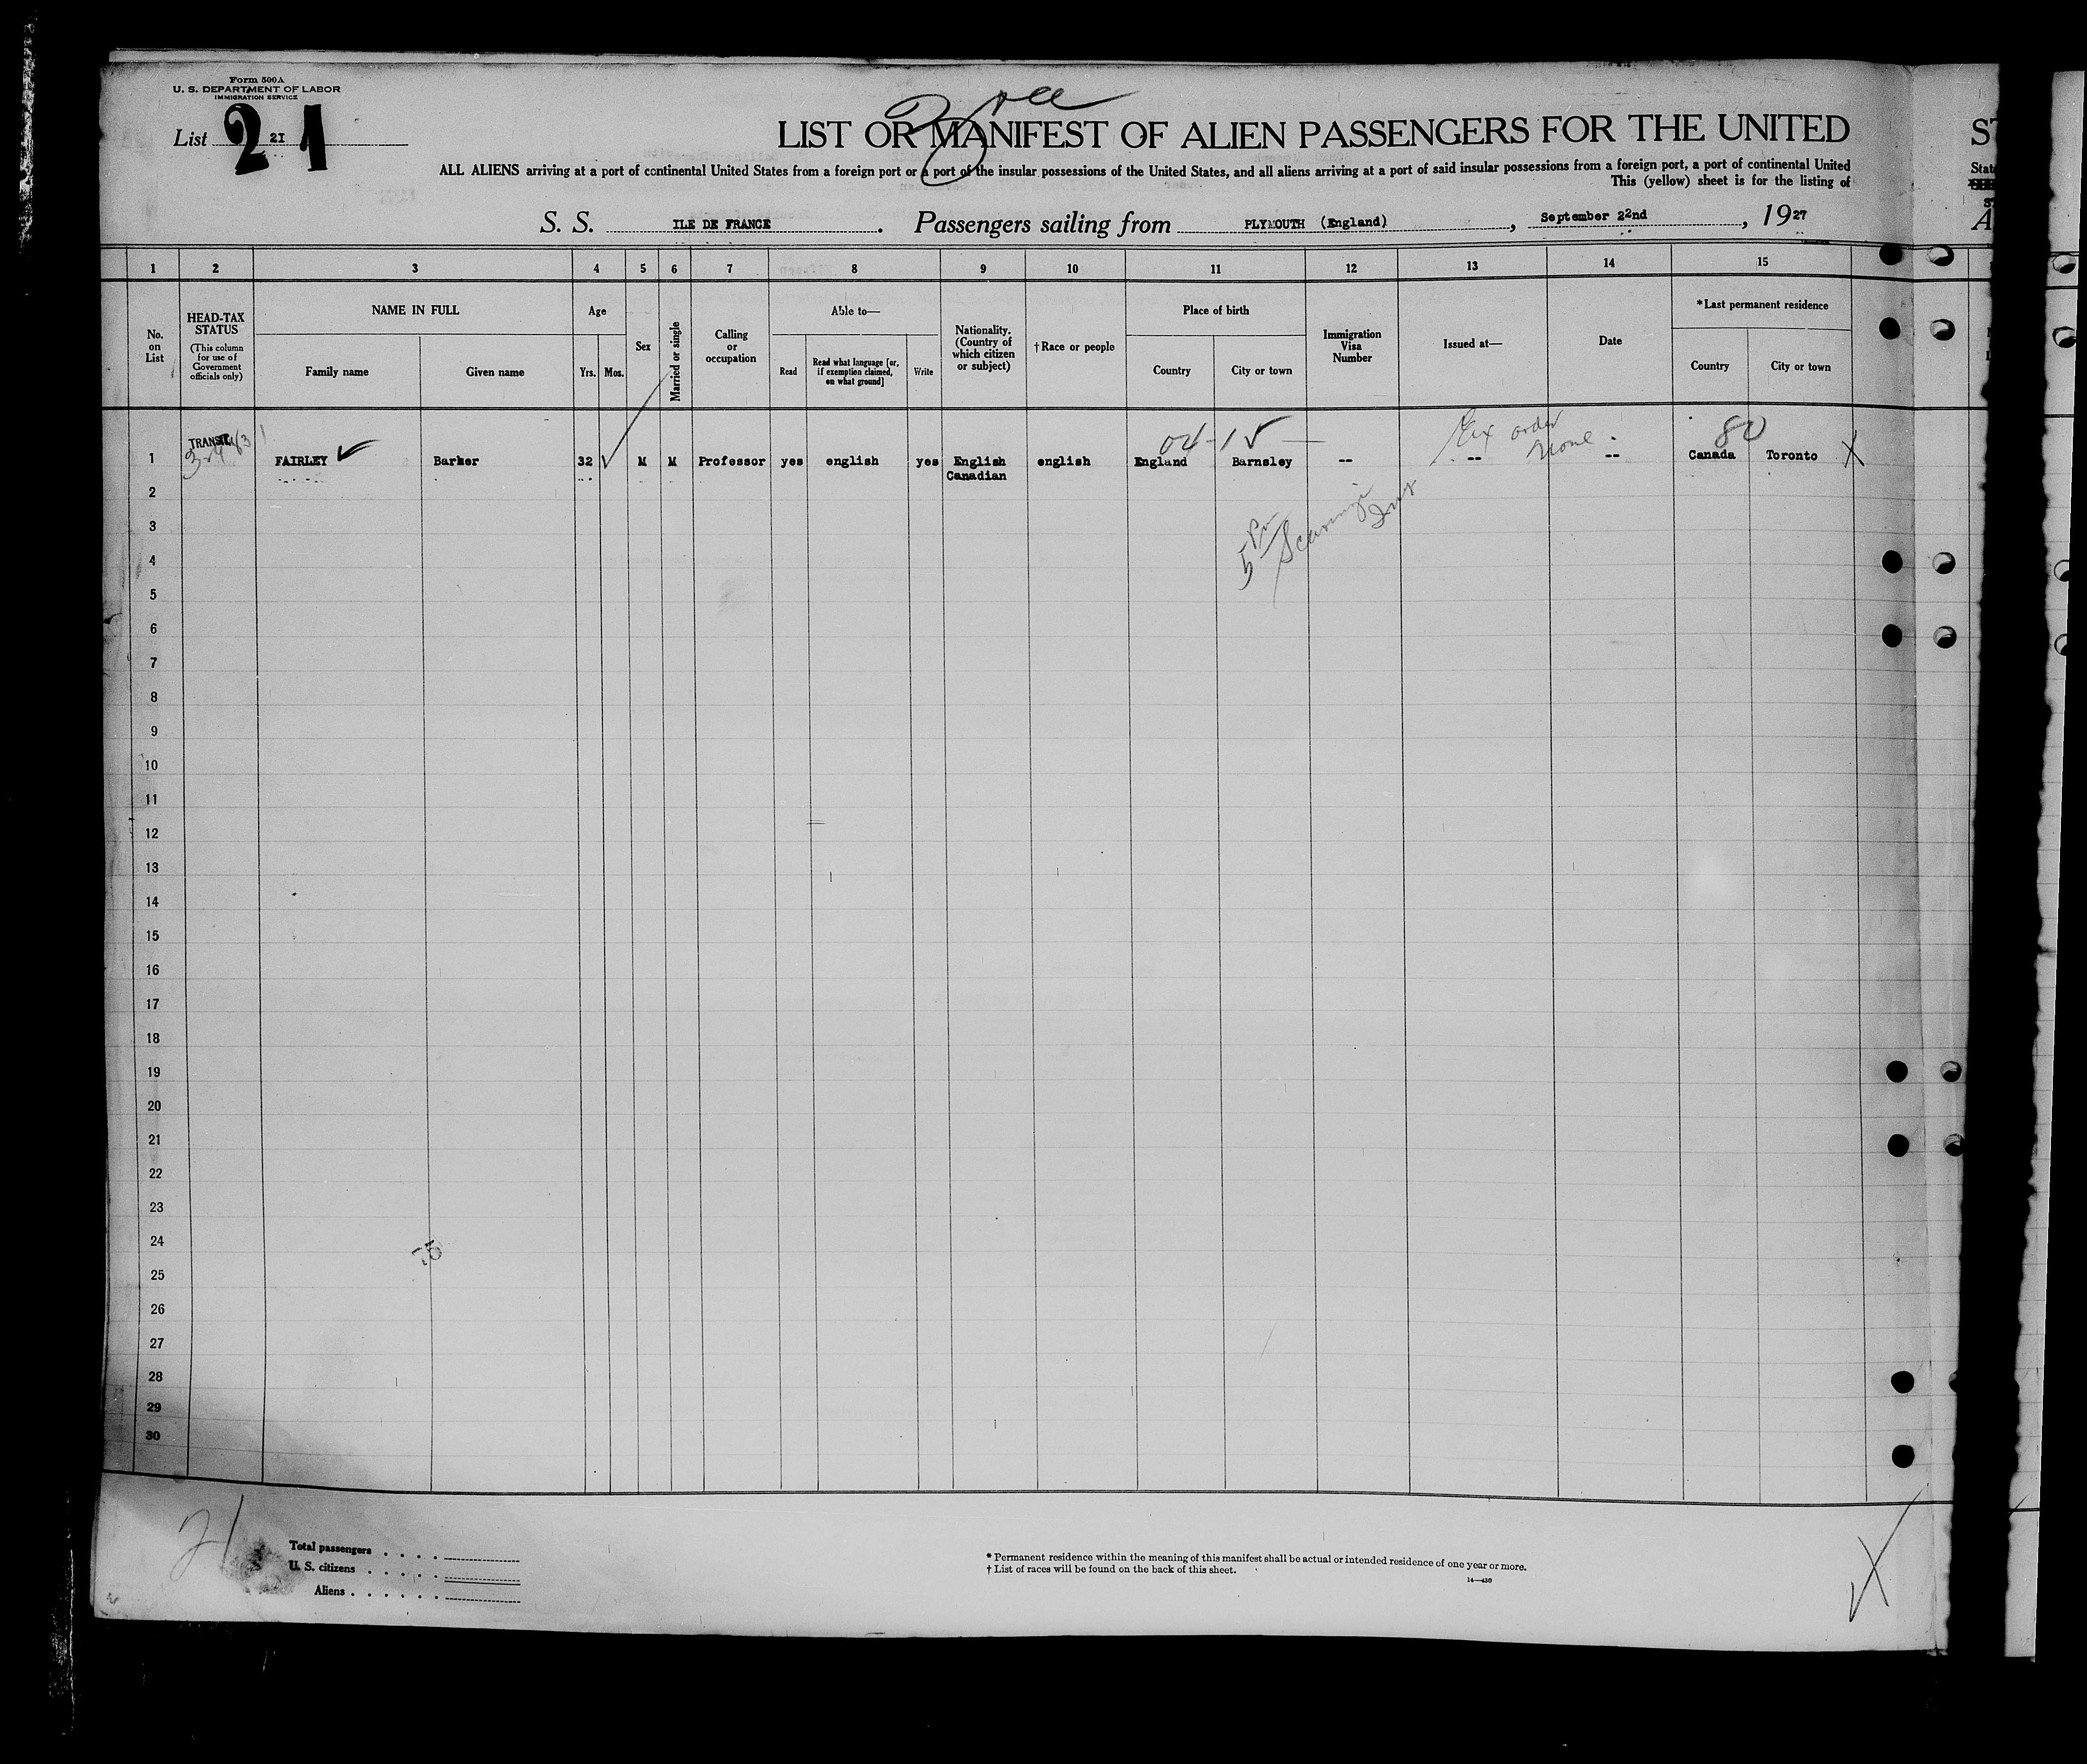 Form 500A
U. S. DEPARTMENT OF LABOR
IMMIGRATION SERVICE
List 21
21
LIST OR MANIFEST OF ALIEN PASSENGERS FOR THE UNITED
ST
ALL ALIENS arriving at a port of continental United States from a foreign port or a port of the insular possessions of the United States, and all aliens arriving at a port of said insular possessions from a foreign port, a port of continental United
This (yellow) sheet is for the listing of
S. S. ILE DE FRANCE . Passengers sailing from PLYMOUTH (England) , September 22nd , 1927
1 2 3 4 5 6 7 8 9 10 11 12 13 14 15
No. on List
HEAD-TAX STATUS
(This column for use of Government officials only)
NAME IN FULL
Family name
Given name
Age
Yrs. Mos.
Sex
Married or single
Calling or occupation
Able to—
Read
Read what language [or, if exemption claimed, on what ground]
Write
Nationality. (Country of which citizen or subject)
† Race or people
Place of birth
Country
City or town
Immigration Visa Number
Issued at—
Date
*Last permanent residence
Country
City or town
04-15
Ex order
None
80
TRANSIT
1 FAIRLEY Barker 32 M M Professor yes english yes English english England Barnsley -- -- -- Canada Toronto X
Canadian
2
3
4
5
6
7
8
9
10
11
12
13
14
15
16
17
18
19
20
21
22
23
24
25
26
27
28
29
30
75
21
Total passengers
U. S. citizens
Aliens
* Permanent residence within the meaning of this manifest shall be actual or intended residence of one year or more.
† List of races will be found on the back of this sheet.
14—430
X